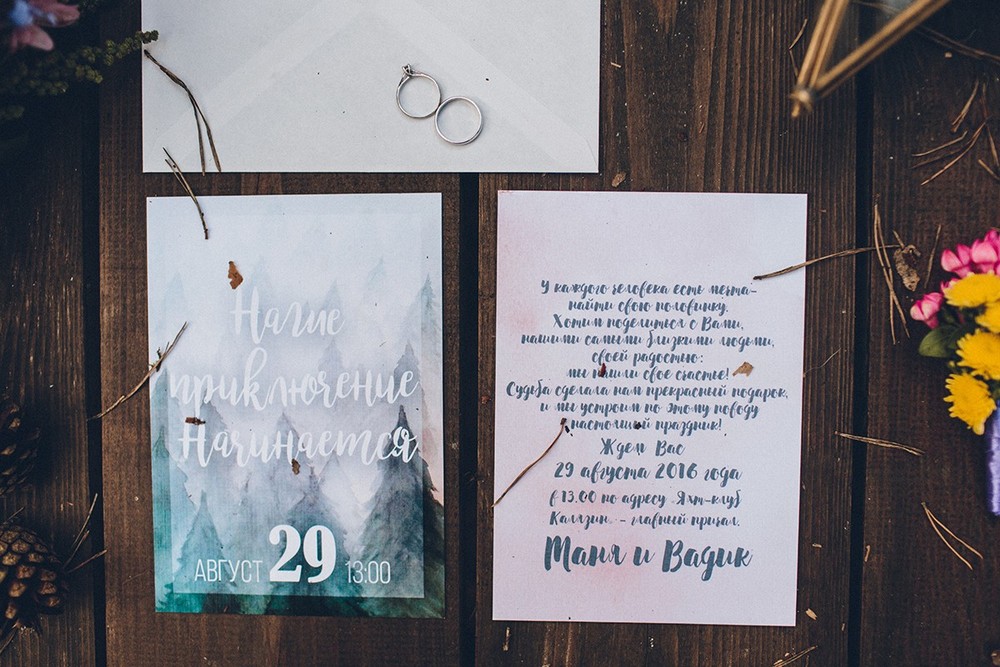 Наше
приключение
Начинается
АВГУСТ 29 13:00
У каждого человека есть мечта-
найти свою половинку.
Хотим поделиться с Вами,
нашими самыми близкими людьми,
своей радостью:
мы нашли свое счастье!
Судьба сделала нам прекрасный подарок,
и мы устроим по этому поводу
настоящий праздник!
Ждем Вас
29 августа 2016 года
в 13.00 по адресу "Яхт-клуб
Калязин" - главный причал.
Маня и Вадик